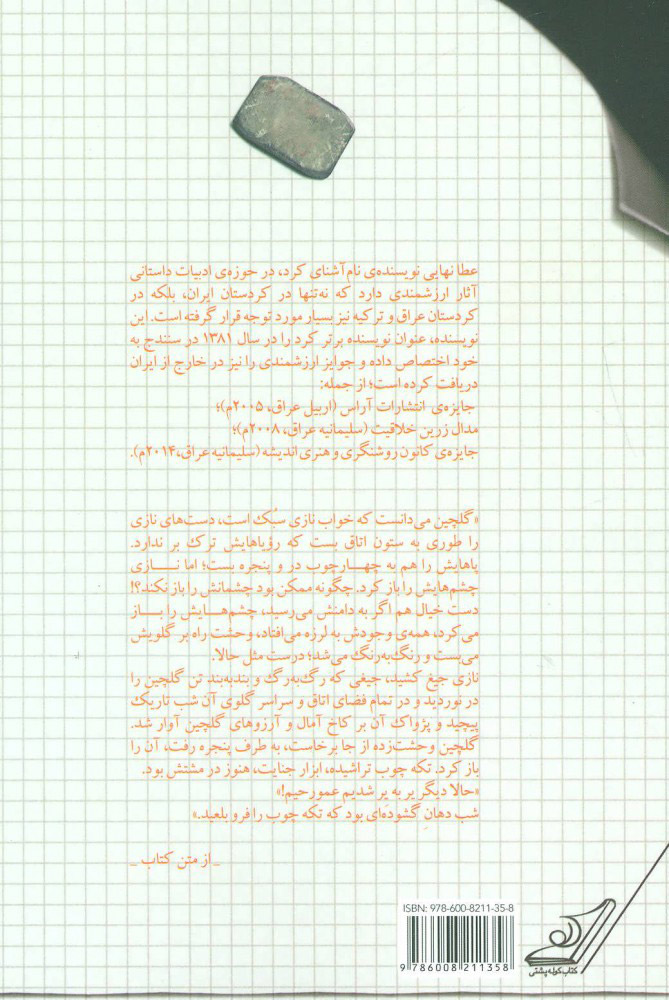 عطا نهایی نویسنده‌ی نام‌آشنای کرد، در حوزه‌ی ادبیات داستانی
آثار ارزشمندی دارد که نه‌تنها در کردستان ایران، بلکه در
کردستان عراق و ترکیه نیز بسیار مورد توجه قرار گرفته است. این
نویسنده، عنوان نویسنده برتر کرد را در سال ۱۳۸۱ در سنندج به
خود اختصاص داده و جوایز ارزشمندی را نیز در خارج از ایران
دریافت کرده است؛ از جمله:
جایزه‌ی انتشارات آراس (اربیل عراق، ۲۰۰۵م)؛
مدال زرین خلاقیت (سلیمانیه عراق، ۲۰۰۸م)؛
جایزه‌ی کانون روشنگری و هنری اندیشه (سلیمانیه عراق،۲۰۱۴م).
«گلچین می‌دانست که خواب نازی سبُک است، دست‌های نازی
را طوری به ستون اتاق بست که رؤیاهایش ترک بر ندارد.
پاهایش را هم به چهارچوب در و پنجره بست؛ اما نازی
چشم‌هایش را باز کرد. چگونه ممکن بود چشمانش را باز نکند؟!
دست خیال هم اگر به دامنش می‌رسید، چشم‌هایش را باز
می‌کرد، همه‌ی وجودش به لرزه می‌افتاد، وحشت راه بر گلویش
می‌بست و رنگ‌به‌رنگ می‌شد؛ درست مثل حالا.
نازی جیغ کشید، جیغی که رگ‌به‌رگ و بندبه‌بند تن گلچین را
در نوردید و در تمام فضای اتاق و سراسر گلوی آن شب تاریک
پیچید و پژواک آن بر کاخ آمال و آرزوهای گلچین آوار شد.
گلچین وحشت‌زده از جا برخاست، به طرف پنجره رفت، آن را
باز کرد. تکه چوب تراشیده، ابزار جنایت، هنوز در مشتش بود.
«حالا دیگر یر به یر شدیم عمورحیم!»
شب دهان گشوده‌ای بود که تکه چوب را فرو بلعید.»
_از متن کتاب _
ISBN: 978-600-8211-35-8
9 786008 211358
کتاب کوله‌پشتی